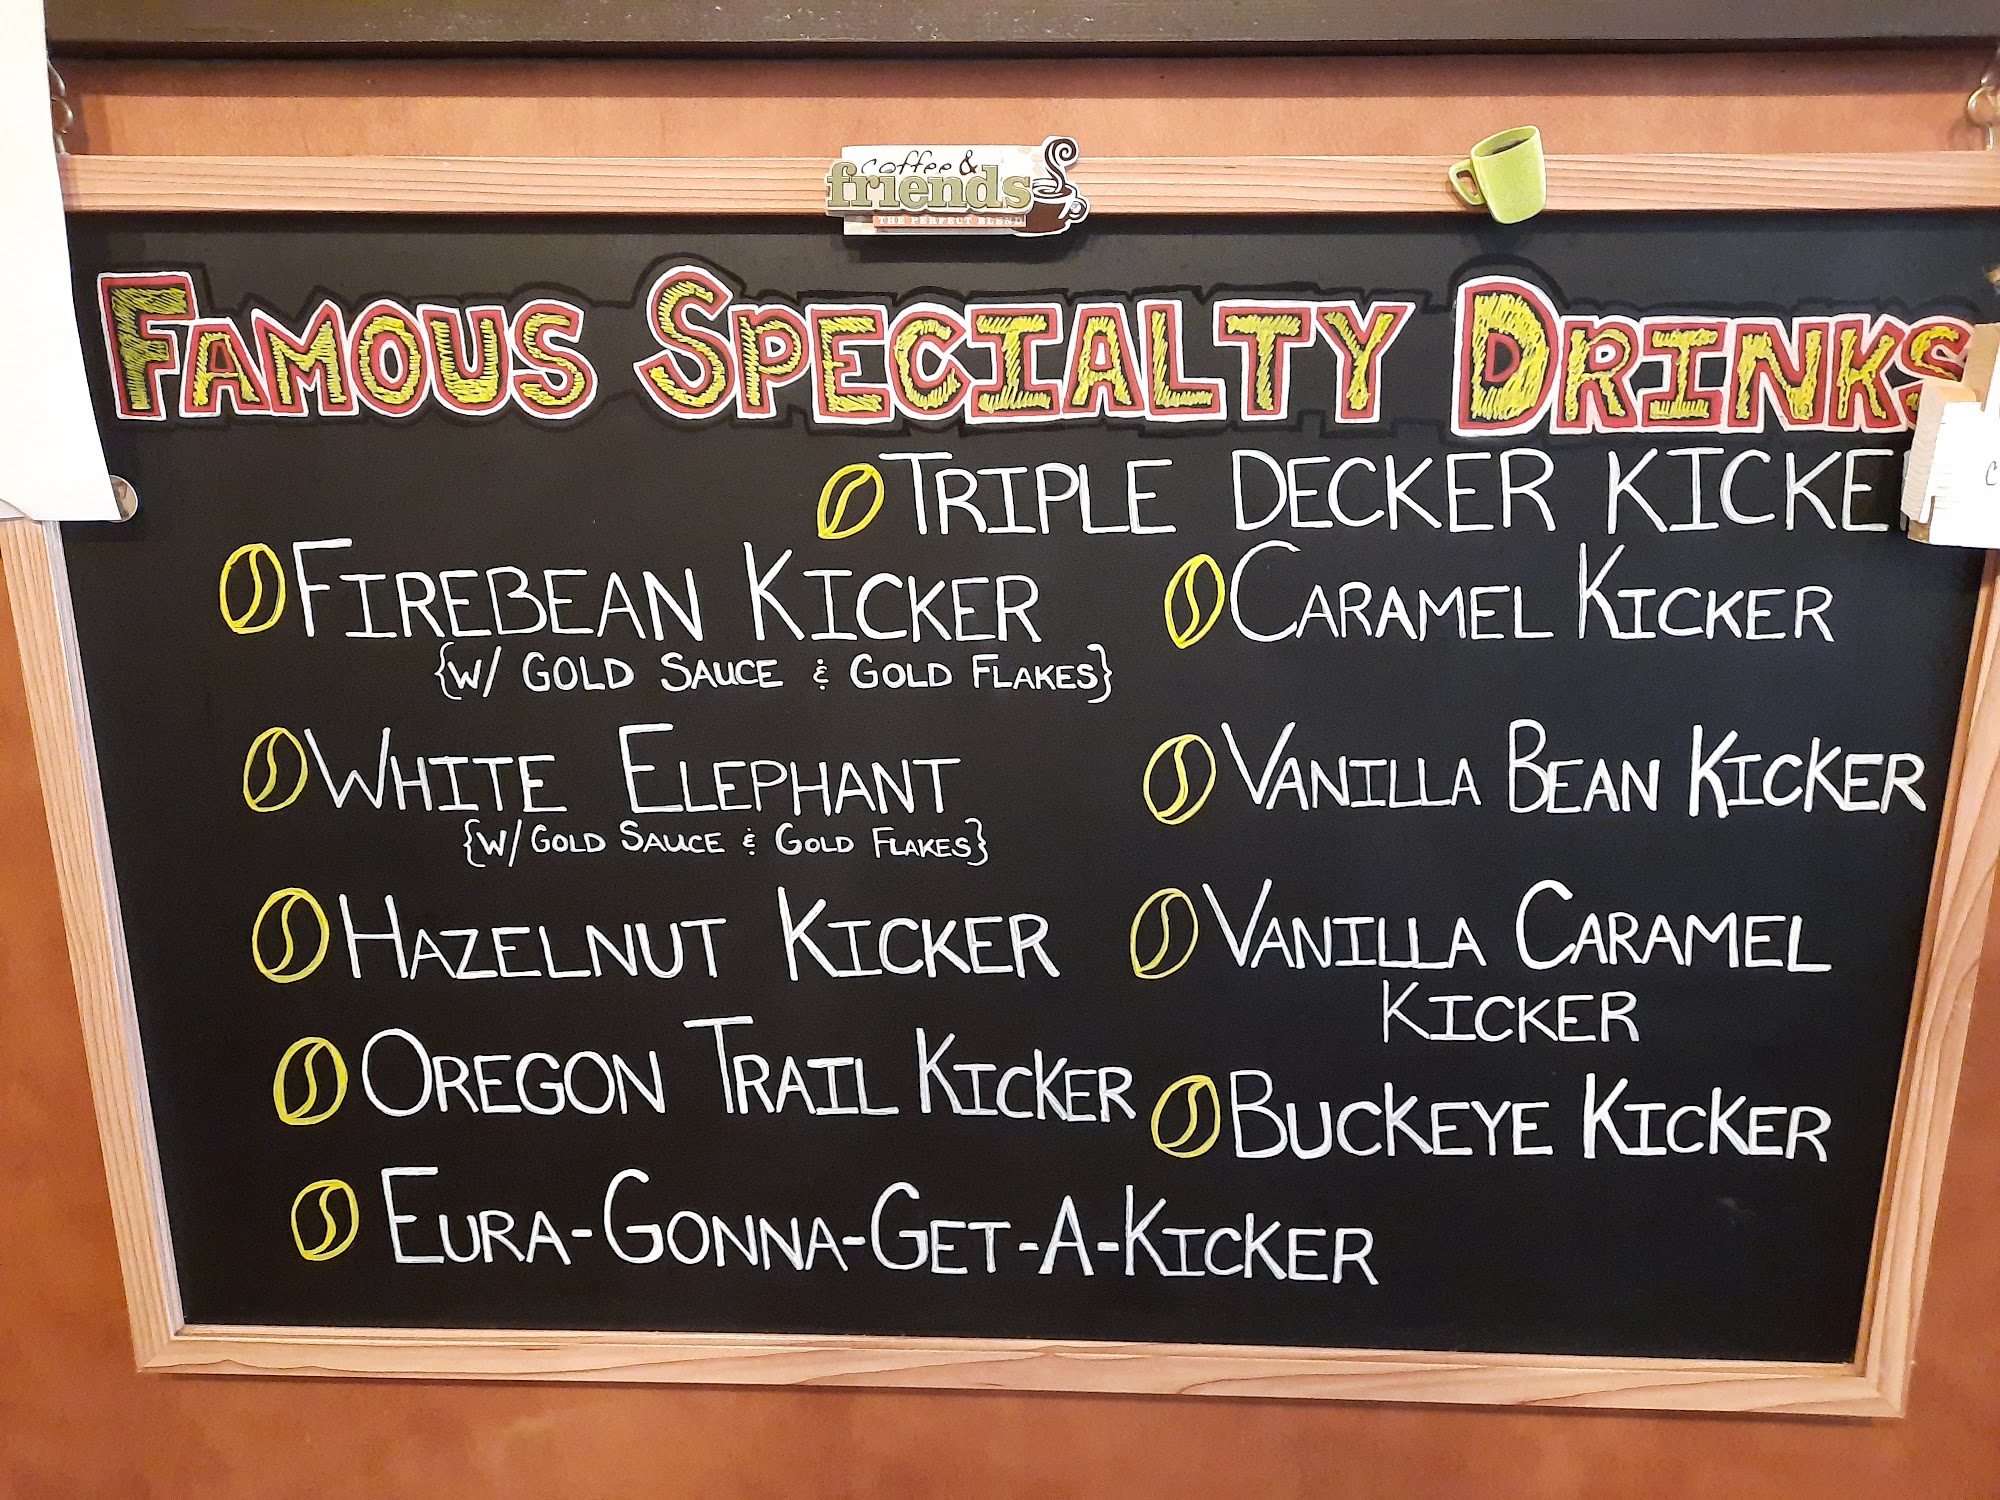 coffee &
friends
THE PERFECT BLEND
FAMOUS SPECIALTY DRINKS
TRIPLE DECKER KICKE
FIREBEAN KICKER
{W/ GOLD SAUCE & GOLD FLAKES}
WHITE ELEPHANT
{W/ GOLD SAUCE & GOLD FLAKES}
HAZELNUT KICKER
OREGON TRAIL KICKER
EURA-GONNA-GET-A-KICKER
CARAMEL KICKER
VANILLA BEAN KICKER
VANILLA CARAMEL
KICKER
BUCKEYE KICKER